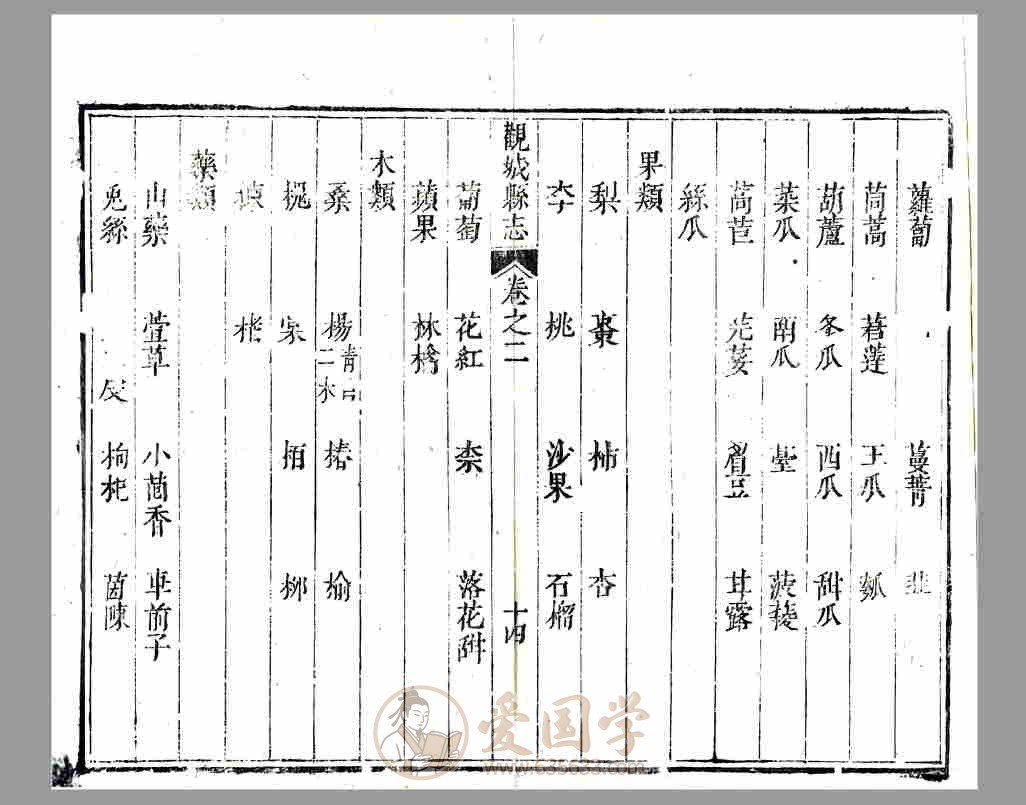 蘿蔔 蔓菁 韭
茼蒿 莙薘 王瓜 瓠
葫蘆 冬瓜 西瓜 甜瓜
菜瓜 南瓜 菠薐
萵苣 芫荽 眉豆 甘露
絲瓜
果類
梨 棗 柿 杏
李 桃 沙果 石榴
觀城縣志 卷之二 十四
葡萄 花紅 柰 落花
蘋果 林檎
木類
桑 楊 青白二木 椿 榆
槐 柏 柳
藥類
山藥 萱草 小茴香 車前子
兔絲 枸杞 茵陳
爱国学
www.635633.com